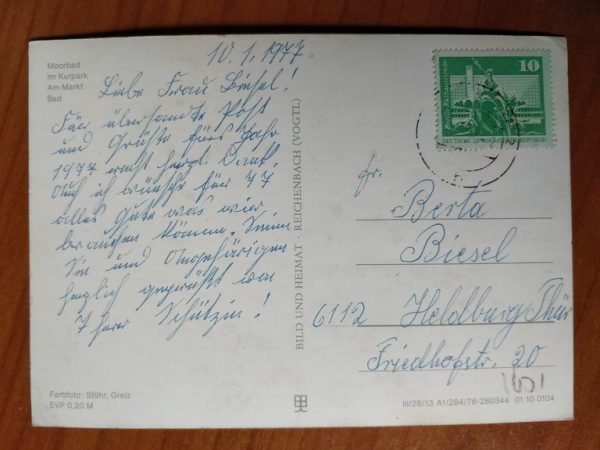 Moorbad
Im Kurpark
Am Markt
Bad
10.1.1977
Liebe Frau Biesel!
Für übersandte Post
und Grüße fürs Jahr
1977 recht herzl. Dank.
Auch ich wünsche für 77
alles Gute was wir
brauchen können. Seien
Sie und Angehörigen
herzlich gegrüßt von
Ihrer Schützin!
BILD UND HEIMAT · REICHENBACH (VOGTL)
10
DEUTSCHE DEMOKRATISCHE REPUBLIK
Fr.
Berta
Biesel
6112 Heldburg Thür
Friedhofstr. 20
Farbfoto: Stöhr, Greiz
EVP 0,20 M
III/26/13 A1/284/76-280344 01 10 0104